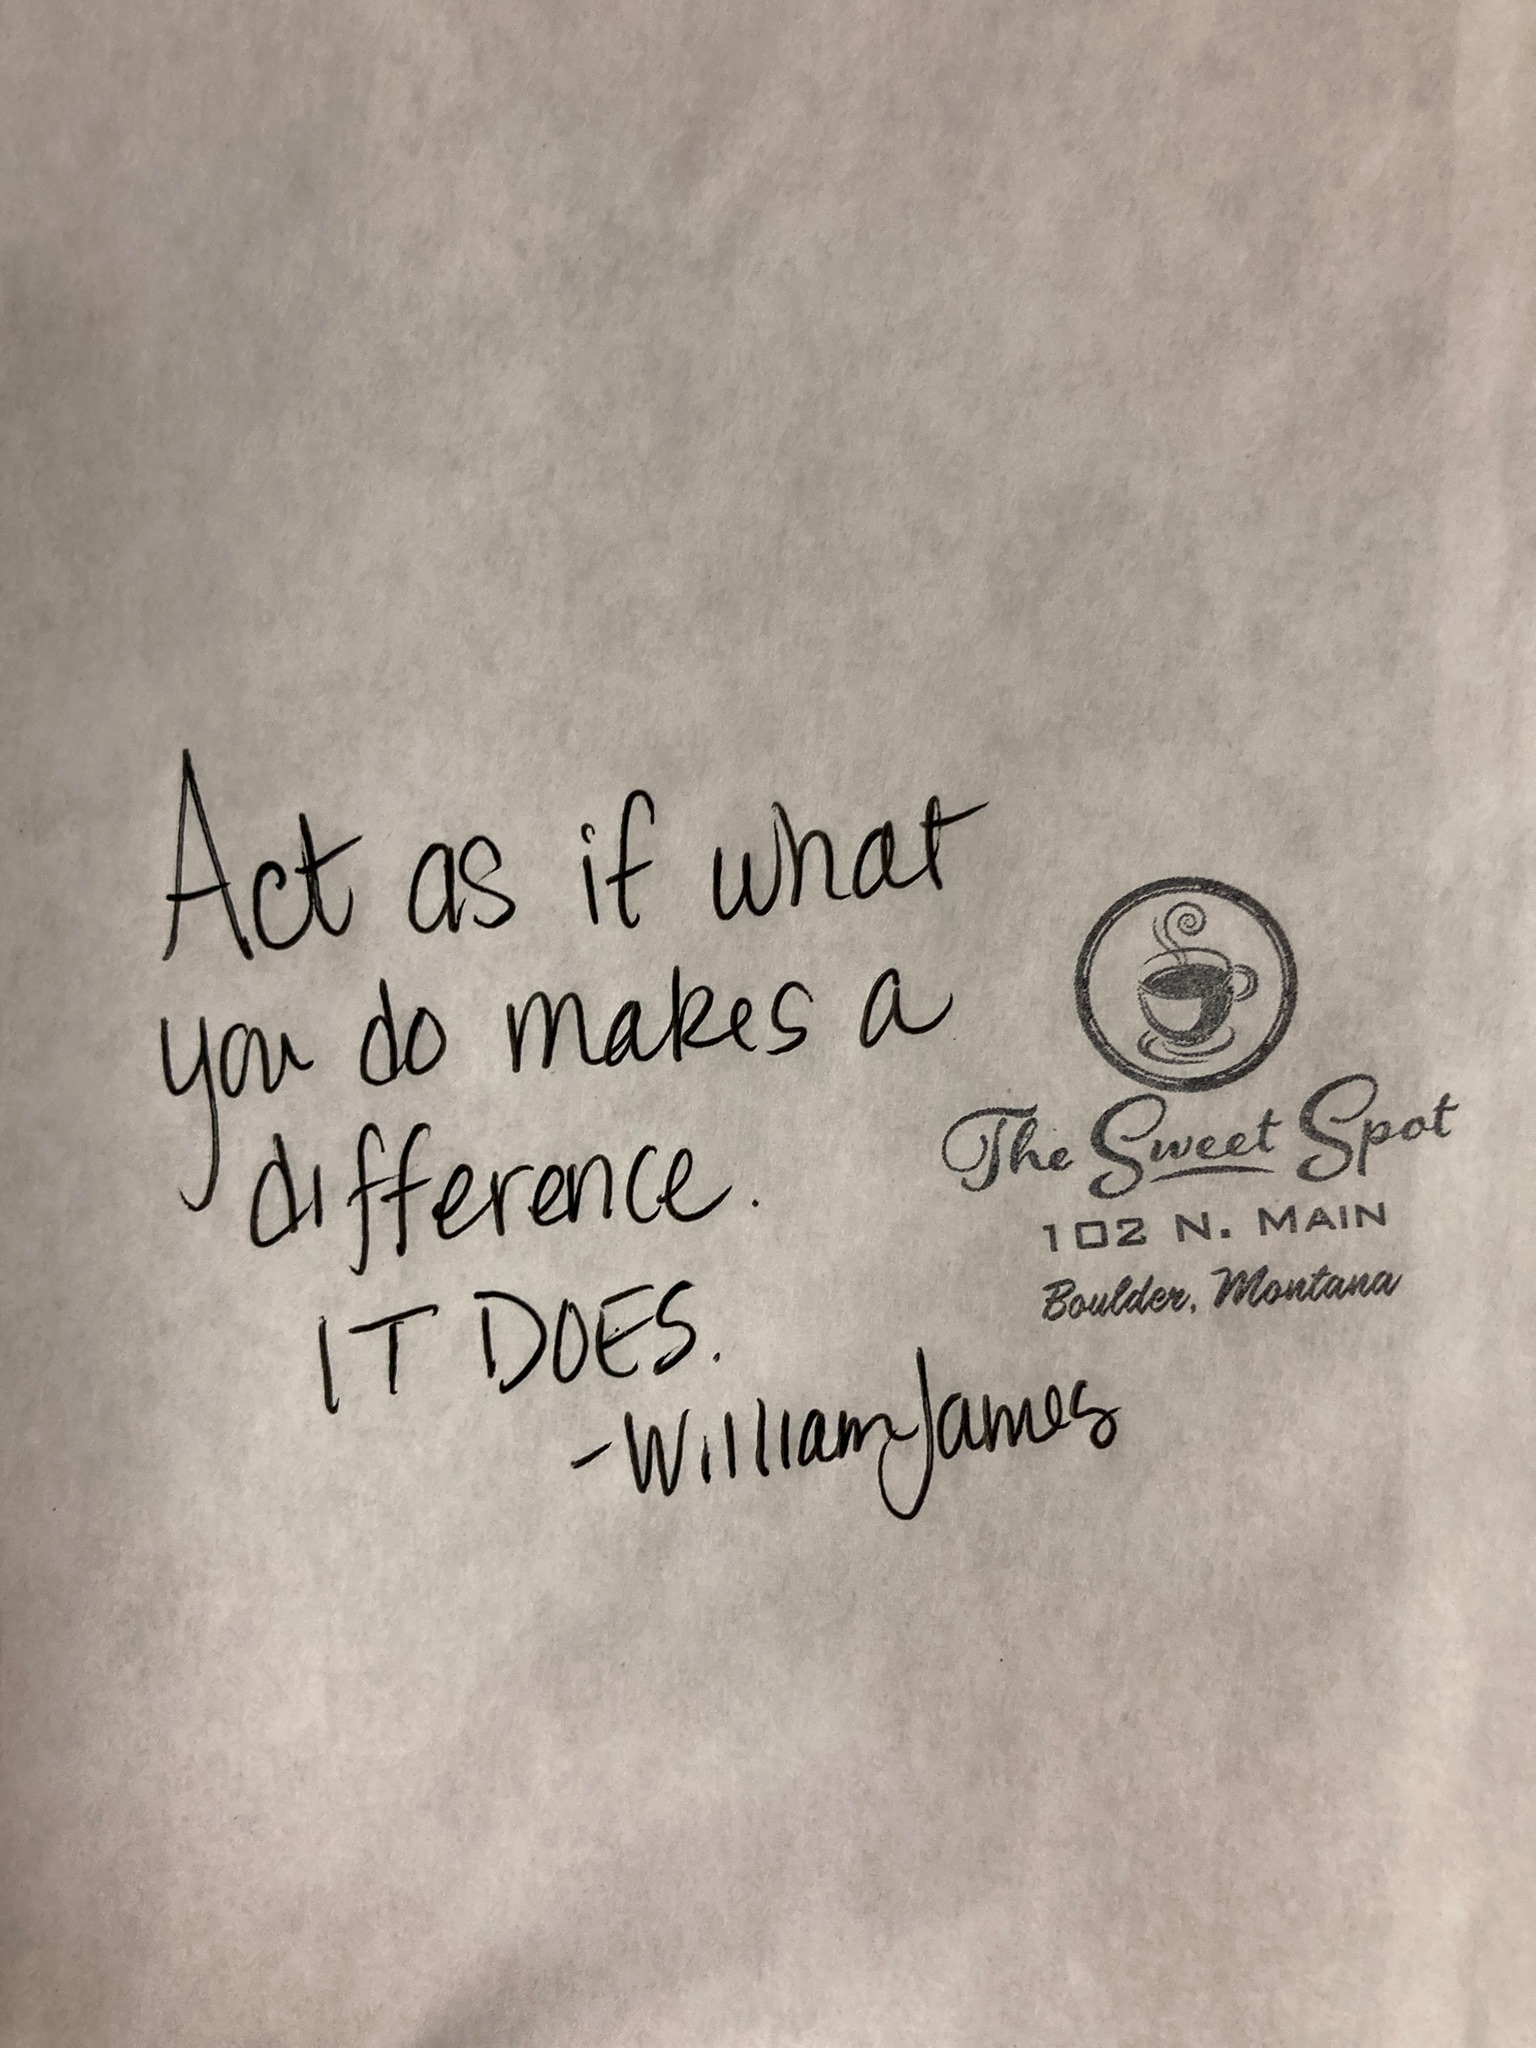 Act as if what
you do makes a
difference.
IT DOES.
-William James
The Sweet Spot
102 N. MAIN
Boulder, Montana